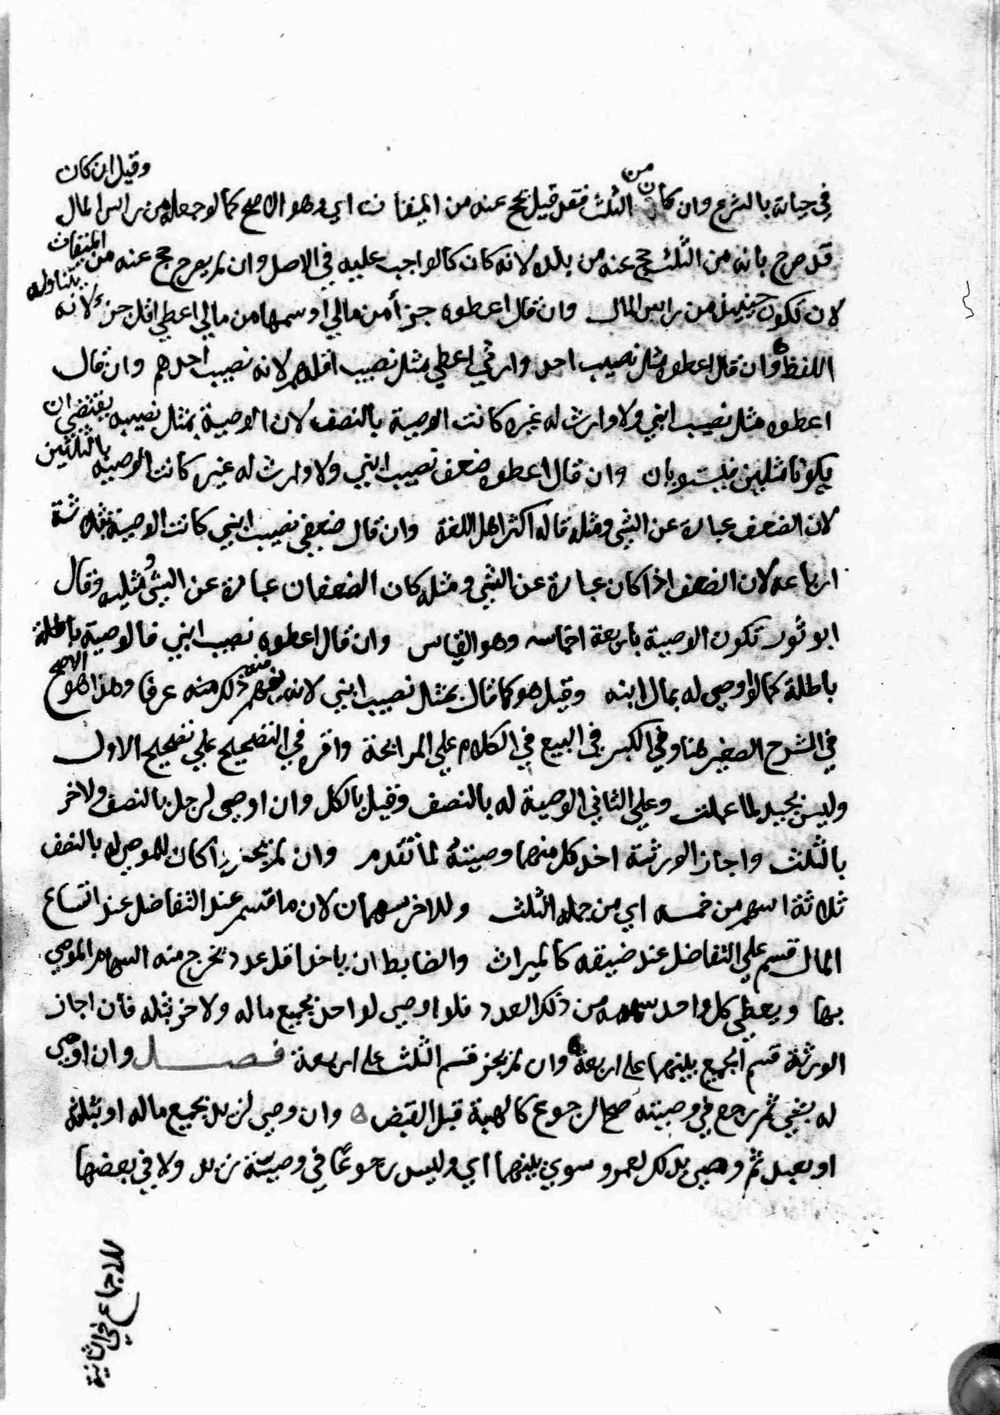 في حياته بالشرع وان كان من الثلث فقد قيل يحج عنه من الميقات اي وهو الاصح كما لو جعله من راس المال وقيل ان كان
قد صرح بانه من الثلث حج عنه من بلده لانه كان كالواجب عليه في الاصل وان لم يصرح حج عنه من الميقات
لان تكون حينئذ من راس المال وان قال اعطوه جزأ من مالي او سهما من مالي اعطي اقل جزء لانه يتناوله
اللفظ وان قال اعطوه مثل نصيب احد وارثي اعطي مثل نصيب اقلهم لانه نصيب احدهم وان قال
اعطوه مثل نصيب ابني ولا وارث له غيره كانت الوصية بالنصف لان الوصية بمثل نصيبه يقتضي ان
يكونا مثلين فيستويان وان قال اعطوه ضعف نصيب ابني ولا وارث له غيره كانت الوصية بالثلثين
لان الضعف عبارة عن الشي ومثله قاله اكثر اهل اللغة وان قال ضعفي نصيب ابني كانت الوصية بثلاثة
ارباعه لان الضعف اذا كان عبارة عن الشي ومثله كان الضعفان عبارة عن الشي ومثليه وقال
ابو ثور تكون الوصية باربعة اخماسه وهو القياس وان قال اعطوه نصيب ابني فالوصية باطلة
باطلة كما لو اوصى له بمال ابنه وقيل هو كما قال بمثل نصيب ابني لانه يفهم ذلك منه عرفا وهذا هو الاصح
في الشرح الصغير هنا وفي الكبير في البيع في الكلام علي المرابحة واقره في التصحيح علي تصحيح الاول
وليس بجيد لما علمت وعلي الثاني الوصية له بالنصف وقيل بالكل وان اوصى لرجل بالنصف ولاخر
بالثلث واجاز الورثة اخذ كل منهما وصيته لما تقدم وان لم يجيزوا كان للموصى له بالنصف
ثلاثة اسهم من خمسه اي من جملة الثلث وللاخر سهمان لان ما قسم عند التفاضل عند اتساع
المال قسم علي التفاضل عند ضيقه كالميراث والضابط ان ياخذ اقل عدد تخرج منه السهام الموصى
بها ويعطي كل واحد سهمه من ذلك العدد فلو اوصى لواحد بجميع ماله ولاخر بثلثه فان اجاز
الورثة قسم الجميع بينهما علي اربعة وان لم يجز قسم الثلث علي اربعة فصل وان اوصى
له بشي ثم رجع في وصيته صح الرجوع كالهبة قبل القبض وان وصى لزيد بجميع ماله او بثلثه
او بعبد ثم وصى بذلك لعمرو سوي بينهما اي وليس رجوعا في وصية زيد ولا في بعضها
للاجماع في الثانية